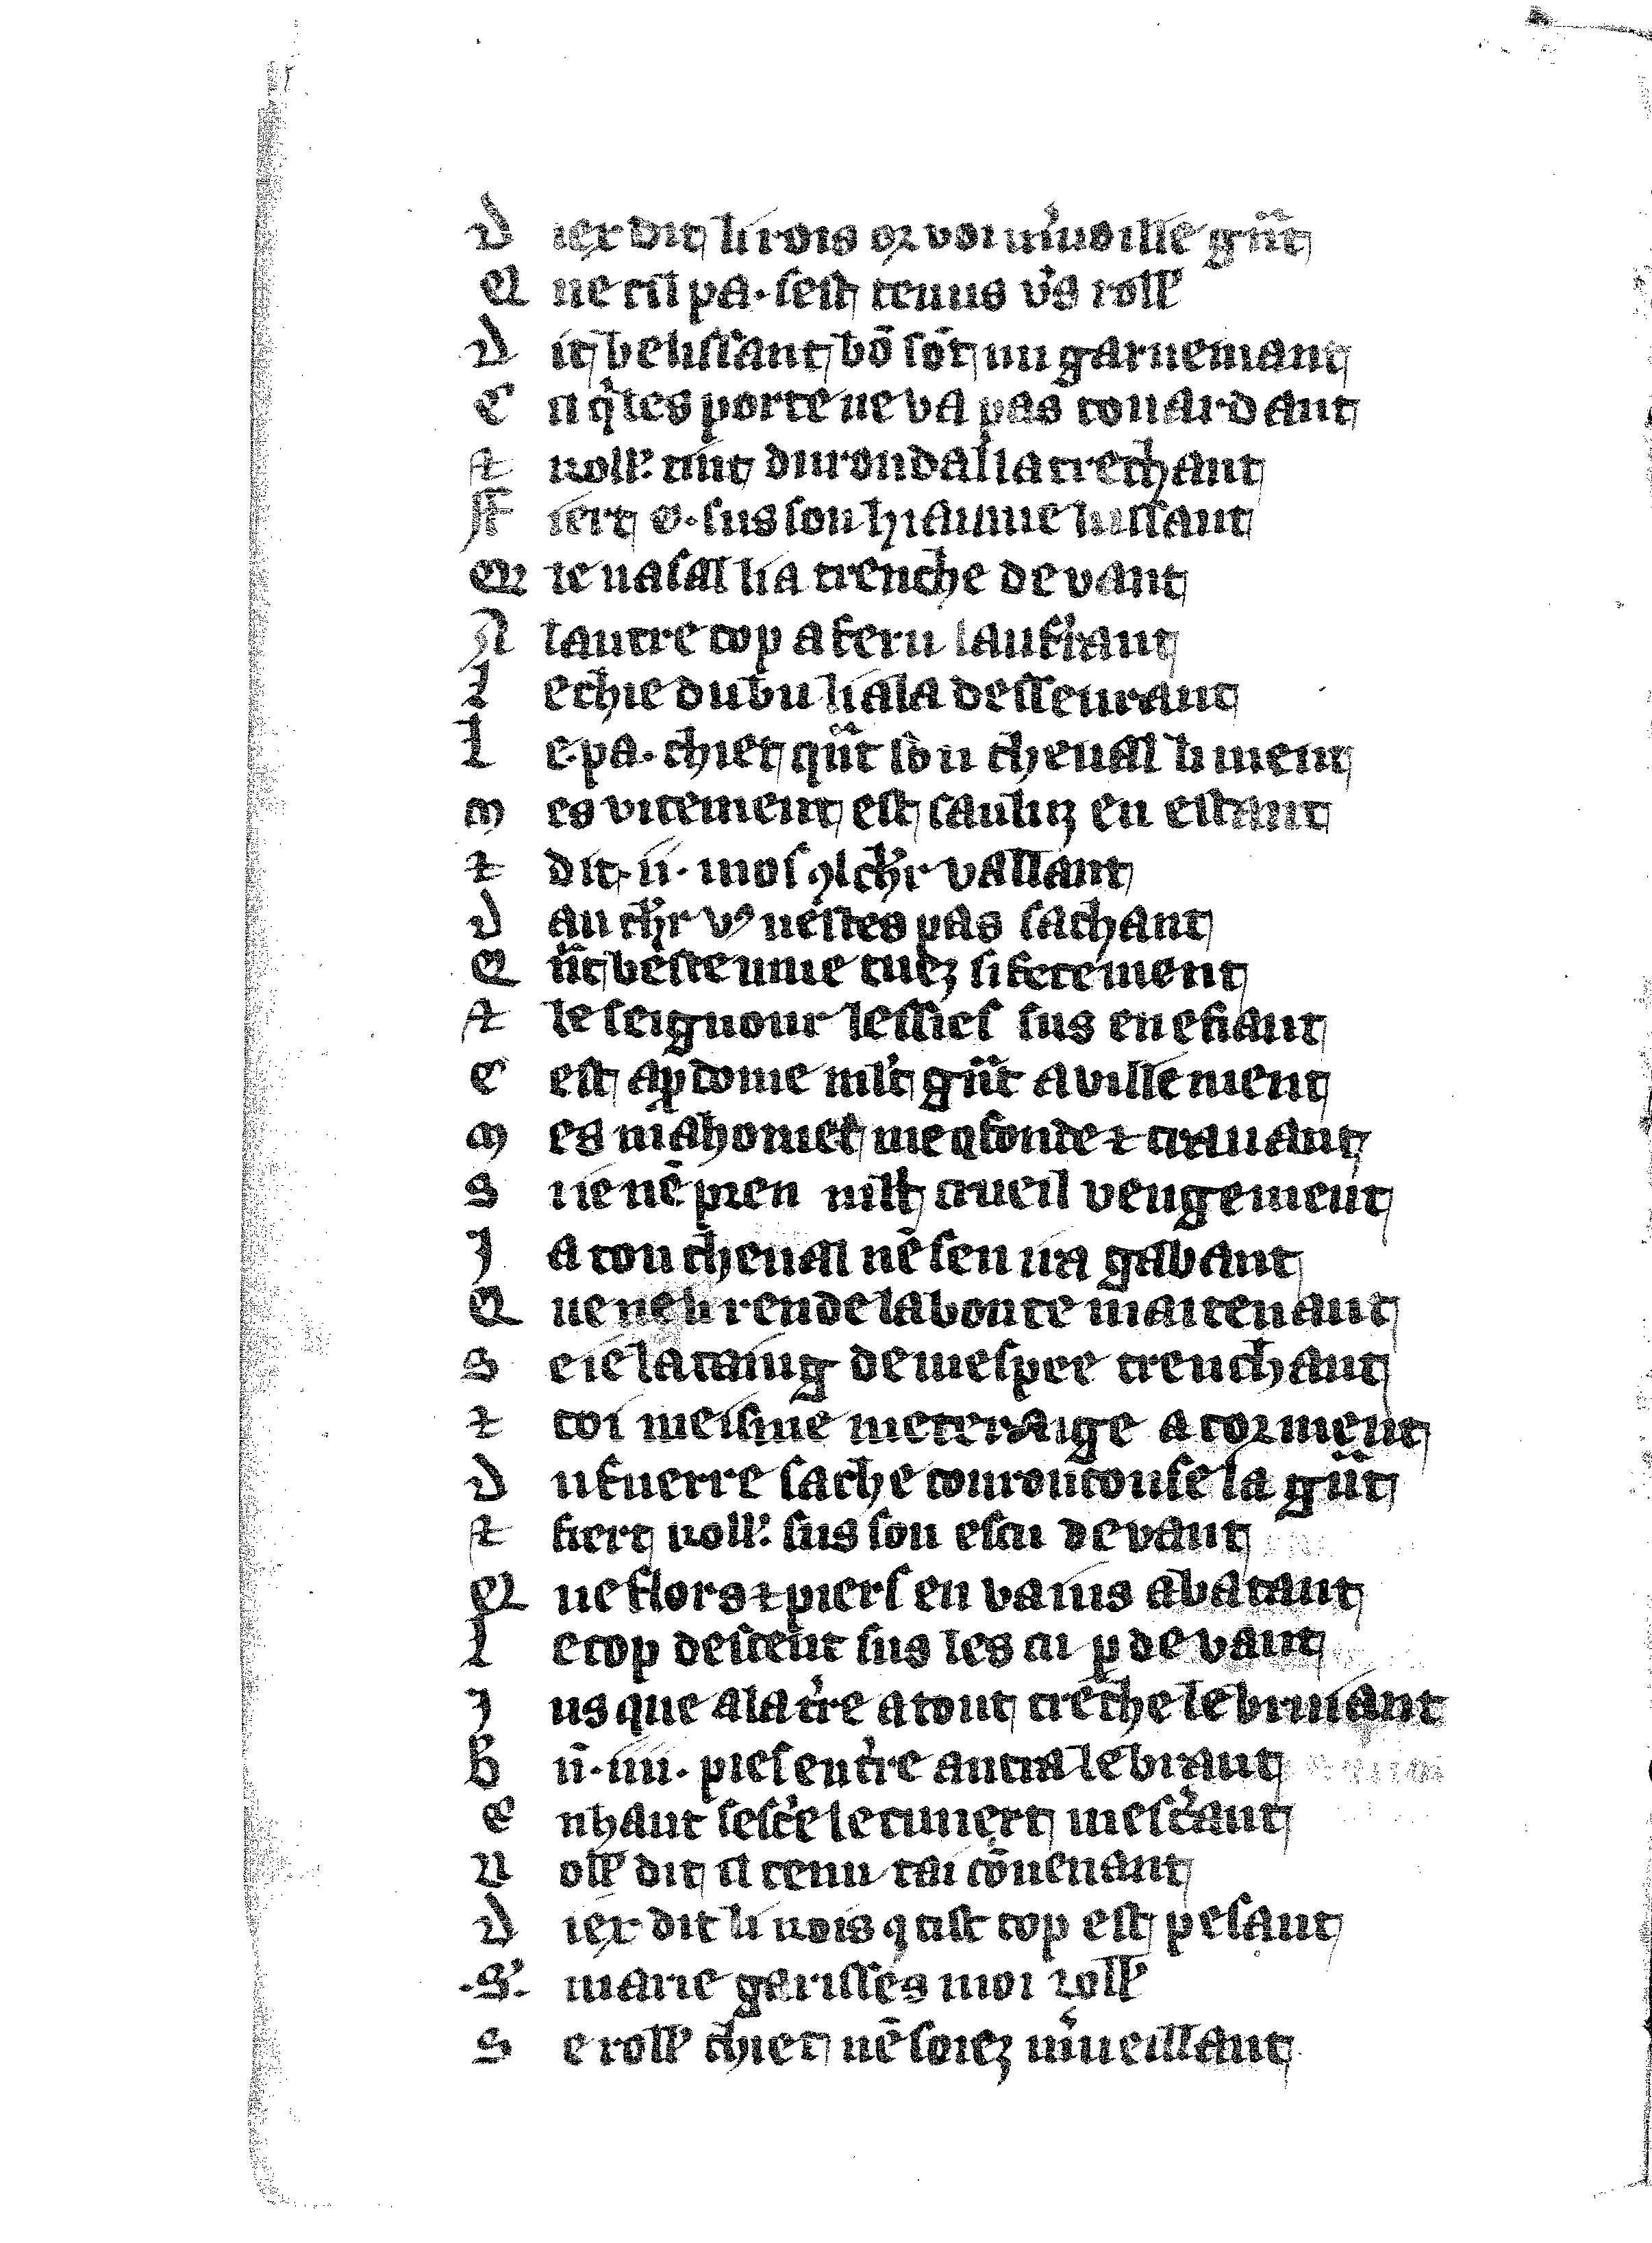 D iex dit li rois or voi m̾uoille gn̄t
Q ue cil pa. sest tenus v̾s roll̾
D it belissant bō sōt mi garnemant
C il q̾ les porte ne va pas couardant
⁊ roll̾. tint durondal la trēchant
F iert .O. sus son hiaume luissant
Q le nasal li a trenche devant
A lautre cop a feru laufirant
L e chie du bu li ala desseurant
L e .pa. chiet qn̄t son cheual li ment
M es vitement est sauliz en estant
⁊ dit .ii. mos ꝯ ch̾r vallant
D an ch̾r vꝰ nestes pas sachant
Q n̄t beste mue tuez si fetement
⁊ le seignour lessies sus en estant
C est a p̾dome ml̾t gn̄t avillement
M es mahomet me ꝯfonde ⁊ crauant
S ie nē pren ml̾t crueil vengement
J a ton cheual nē sen ira gabant
Q ue ne li rende la bonte maitenant
S e ie lataing de mespee trenchant
⁊ toi meisme meteraige a torment
D u fuerre sache courouconse la gn̄t
⁊ fiert roll̾. sus son escu devant
Q ue flors ⁊ piers en va ius abatant
L e cop descent sus les cu p̱ devant
J usque a la t̾re a tout trēche le bruiant
B īi. iiii. pies en t̾re antra le brant
E n haut sesc̾e le cuuert mescreant
R oll̾ dit il tenu tai cōuenant
D iex dit li rois q̾ cist cop est pesant
.S̾. marie garisses moi roll̾
S e roll̾ chiet nē soiez m̾ueillant